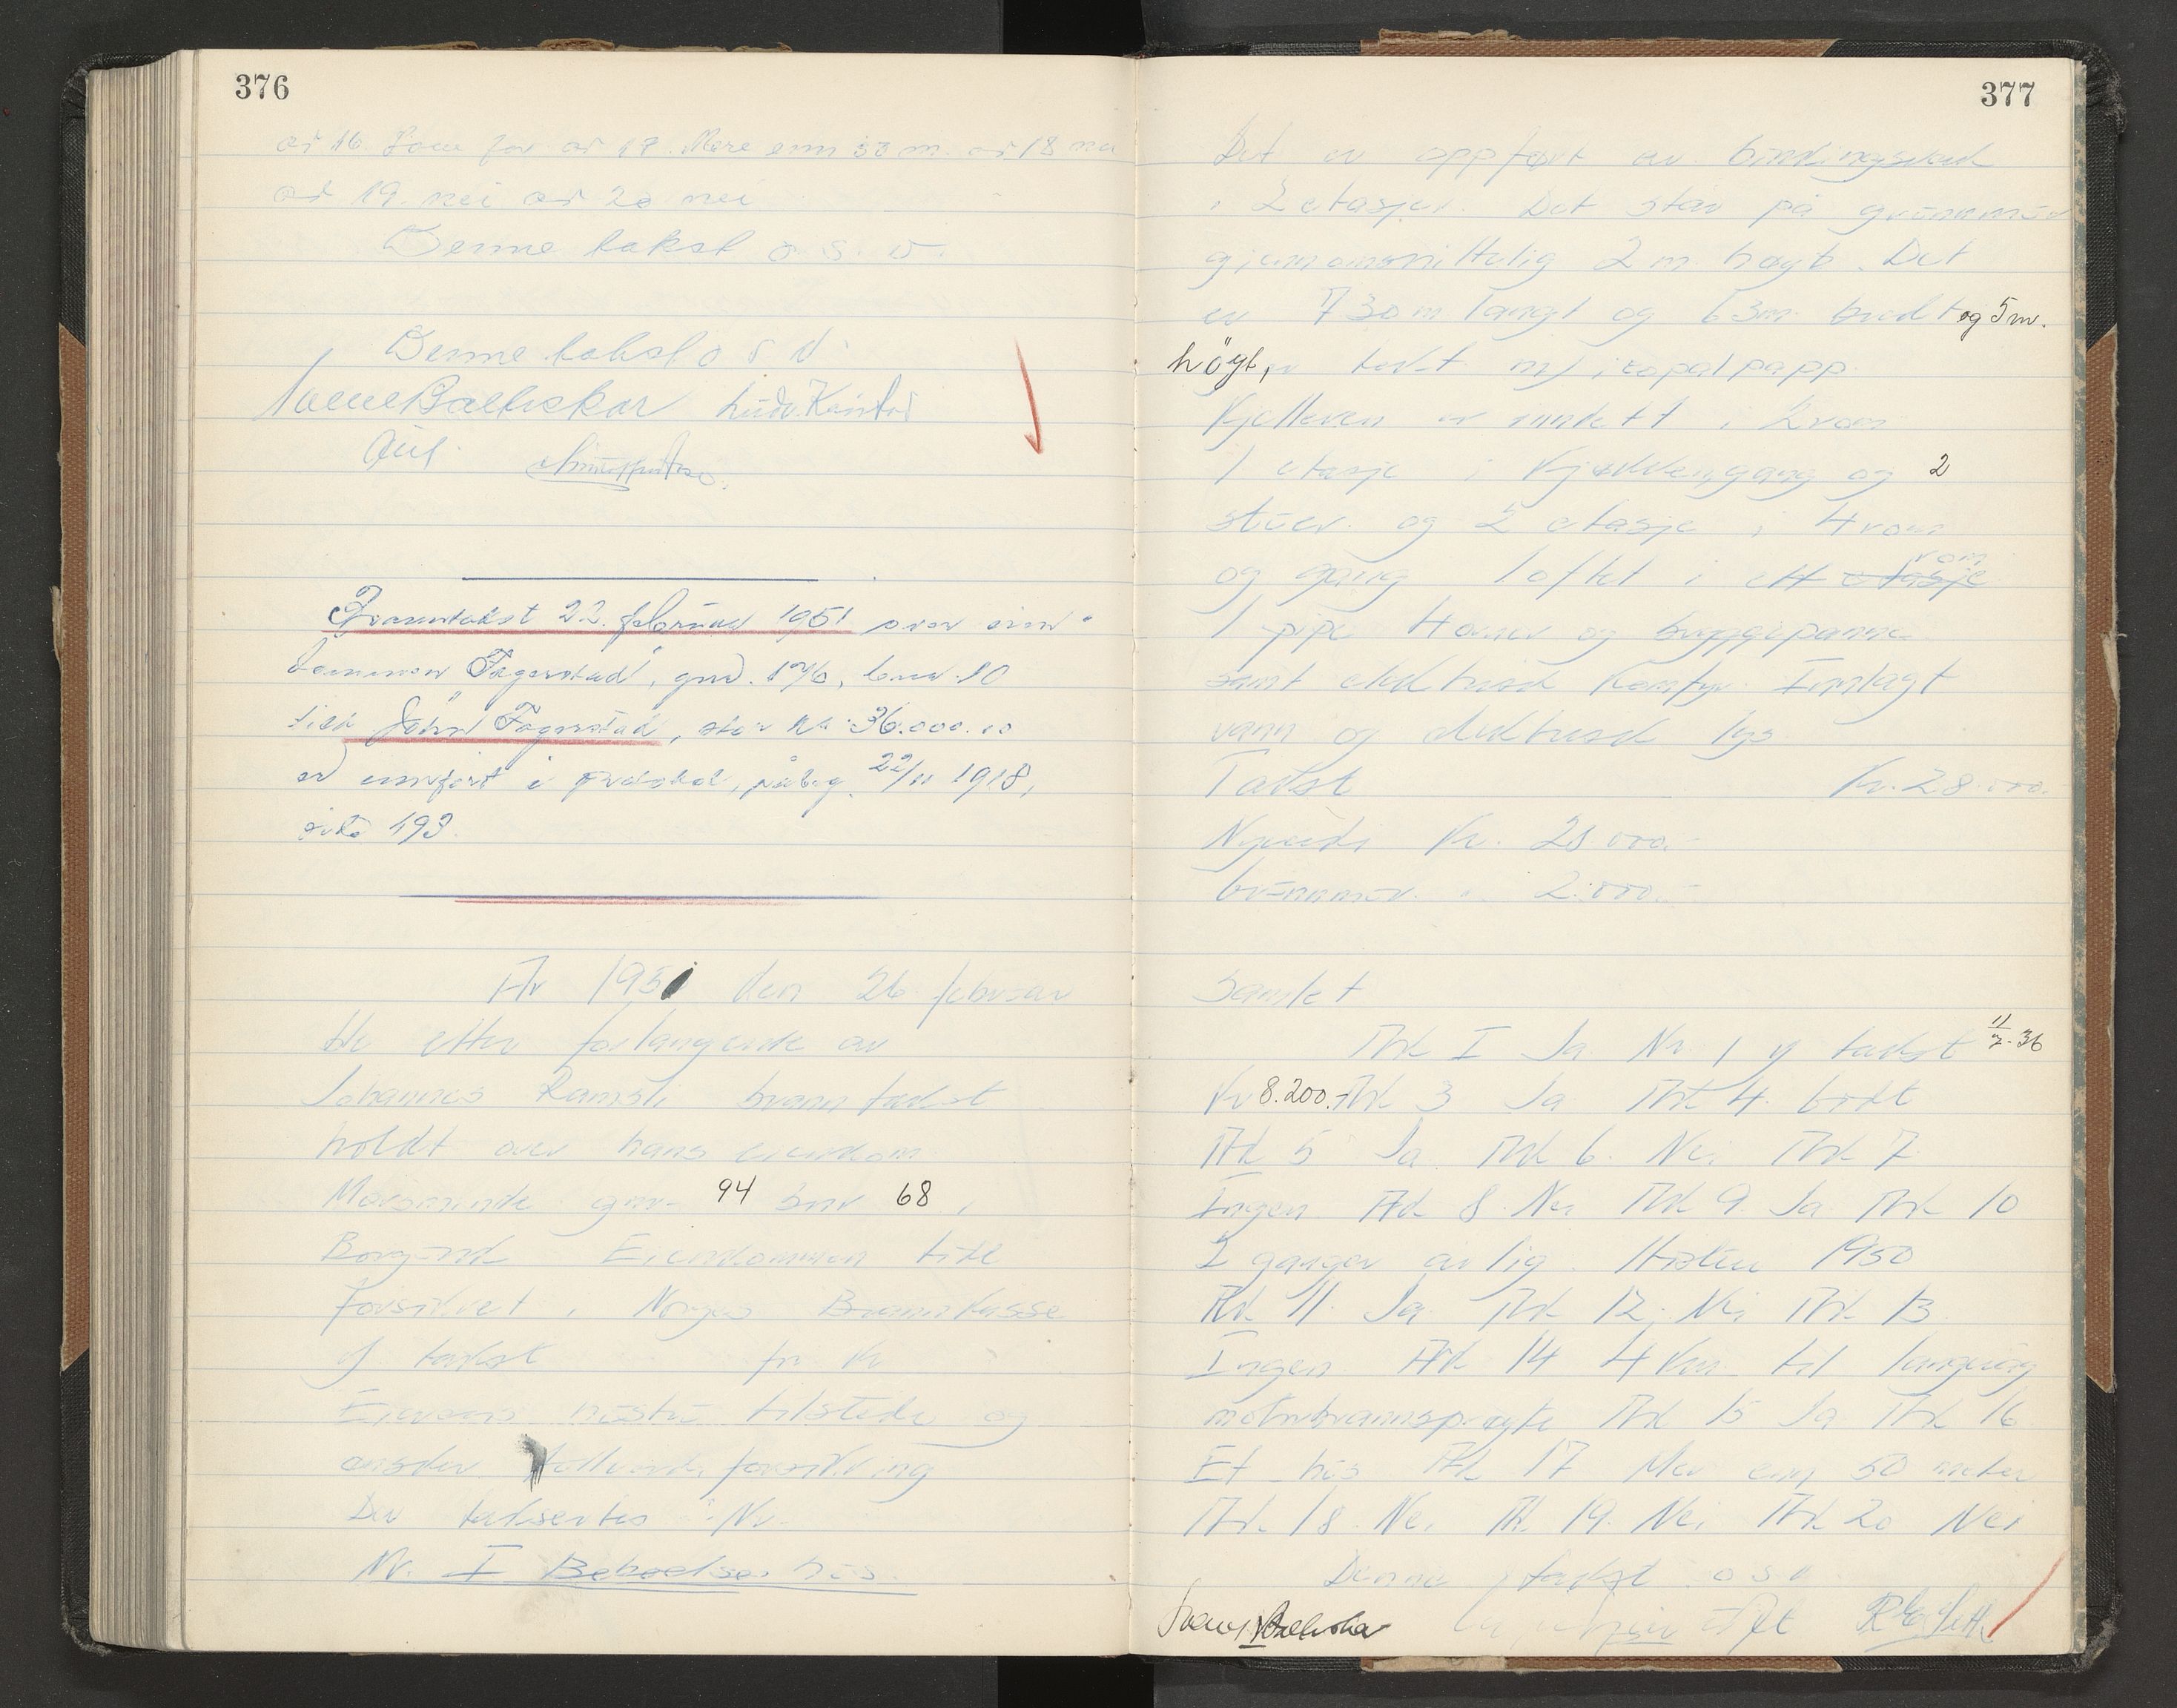 376
ad 16. Som før ad 17. Mere enn 50 m. ad 18 nei
ad 19. nei ad 20 nei
Denne takst o. s. v.
Denne takst o s v.
Ludv.
Branntakst 22. februar 1951 over eien-
dommen "Fagerstad", gnr. 176, bnr. 10
tilh. John Fagerstad, stor kr. 36.000.00
er innført i protokol, påbeg. 22/11 1918,
side 193.
År 1951 den 26 februar
ble etter forlangende av
Johannes Ramsli branntakst
holdt over hans eiendom
gnr. 94 bnr 68 i
Borgund Eiendommen ikke
forsikret i Norges Brannkasse
if takst fr kr
Eierens hustru tilstede og
ønsker fullverdi forsikring
Der takseres: Nr.
Nr. I Beboelseshus.
377
Det er oppført av bindingsverk
i 2 etasjer. Det står på grunnmur
gjennomsnittelig 2 m. høyt. Det
er 7.30 m langt og 6.3 m. bredt og 5 m.
höyt, tekt m/ icopalpapp.
Kjelleren er inndelt i 2 rom
1 etasje i Kjøkken, gang og 2
stuer. og 2 etasje i 4 rom
og gang loftet i ett etasje rom
1 pipe 4 ovner og bryggepanne
samt elektrisk komfyr. Innlagt
vann og elektrisk lys
Takst Kr. 28.000.
Nyverdi Kr. 28.000.-
Grunnmur. " 2.000.-
Samlet
Pkt I Ja Nr. 1 if takst 11/7-36
Kr 8.200.- Pkt 3 Ja Pkt 4. bodt
Pkt 5 Ja Pkt 6. Nei Pkt 7
Ingen Pkt 8. Nei Pkt 9. Ja Pkt 10
2 ganger årlig. Høsten 1950
Pkt 11. Ja Pkt 12. Nei Pkt 13
Ingen Pkt 14 4 km til
motorbrannsprøyte Pkt 15 Ja Pkt 16
Et hus Pkt 17 Mer enn 50 meter
Pkt. 18. Nei Pkt. 19. Nei Pkt 20 Nei
Denne takst o s v